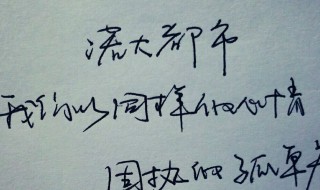 诺大都市
我们以同样的心情
固执的孤单